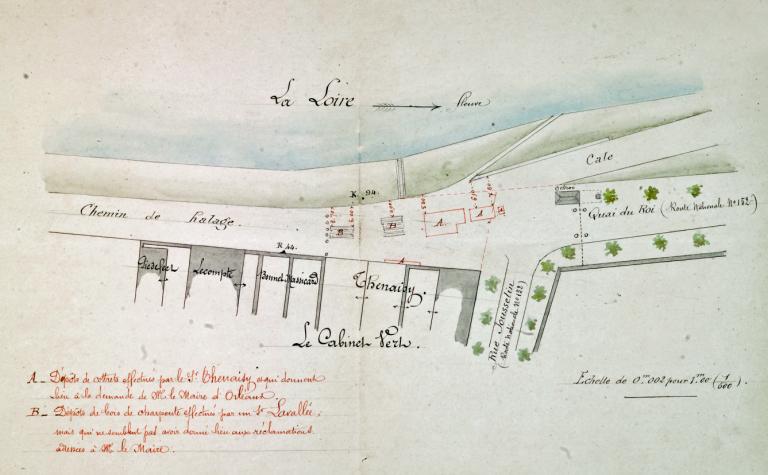 La Loire
fleuve
Cale
K. 94.
Octroi
Chemin de halage.
Quai du Roi (Route Nationale N° 152)
B
B
A.
A
K. 44.
A
Lecompte
Bonnet-Massicard
Thenaisy.
Rue Jousselin
(Route Nationale N° 152)
Le Cabinet Vert.
A_ Dépôts de cottrets effectués par le Sr. Thenaisy et qui donnent
lieu à la demande de Mr. le Maire d'Orléans
B_ Dépôts de bois de charpente effectués par un Sr. Lavallée,
mais qui ne semblent pas avoir donné lieu aux réclamations
adressées à Mr. le Maire.
Echelle de 0m.002 pour 1.m00 (1/500).